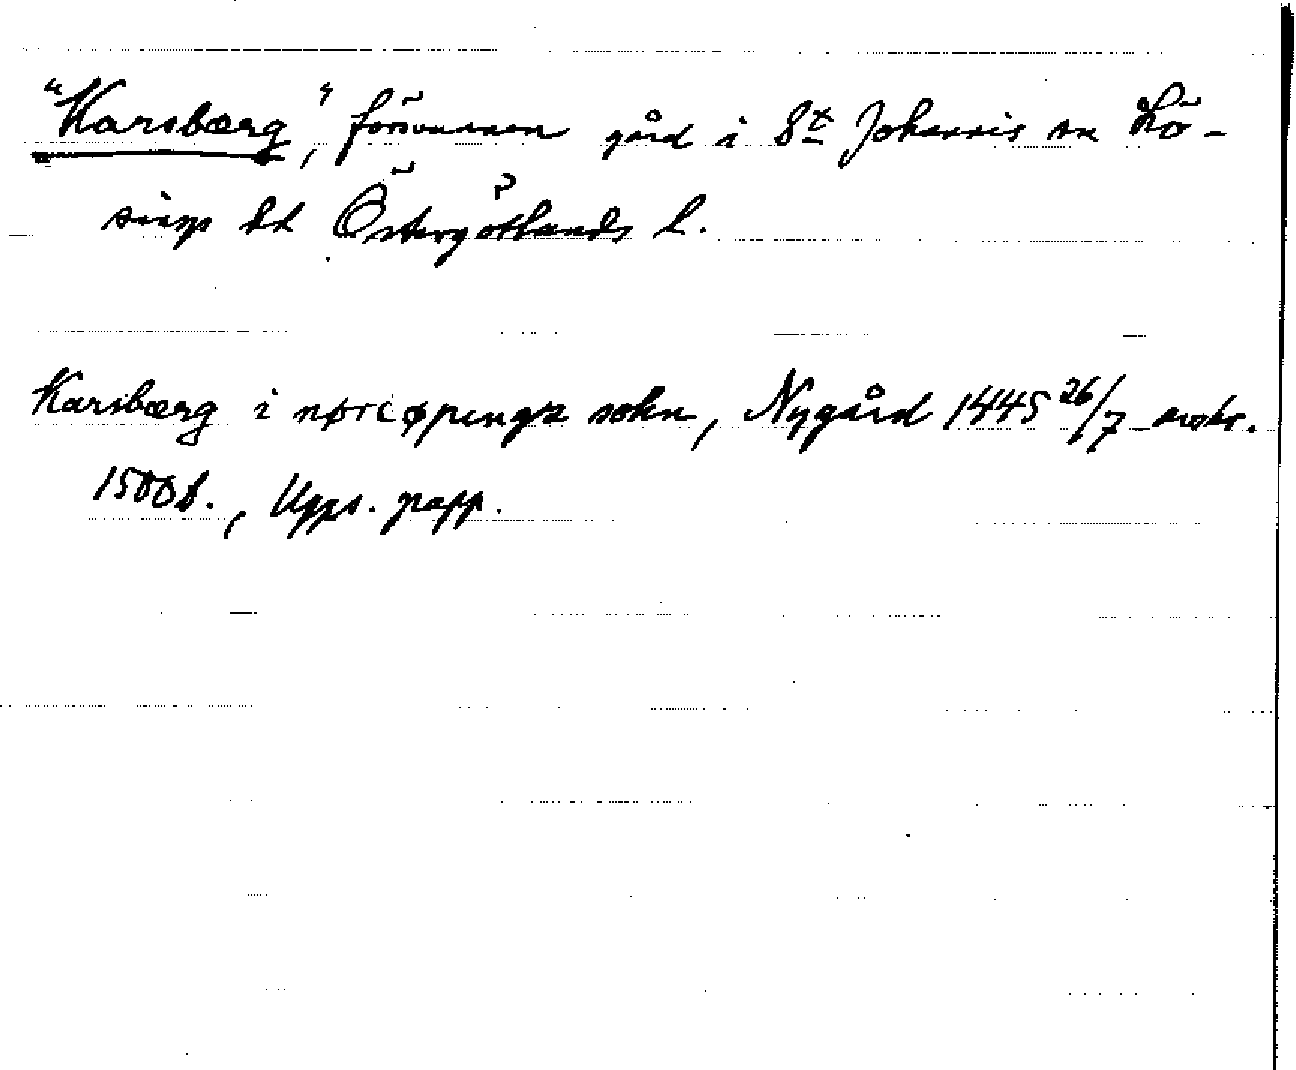 "Karsbærg", försvunnen gård i St Johannis sn Lö-
sings hd Östergötlands l.
Karsbærg i nørcøpungx sokn, Nygård 1445 26/7 avskr.
1500t., Upps. papp.